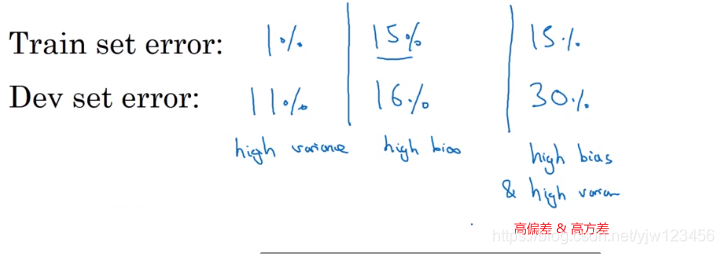 Train set error: 1% 15% 15%
Dev set error: 11% 16% 30%
high variance high bias high bias
& high varian
高偏差 & 高方差
https://blog.csdn.net/yjw123456